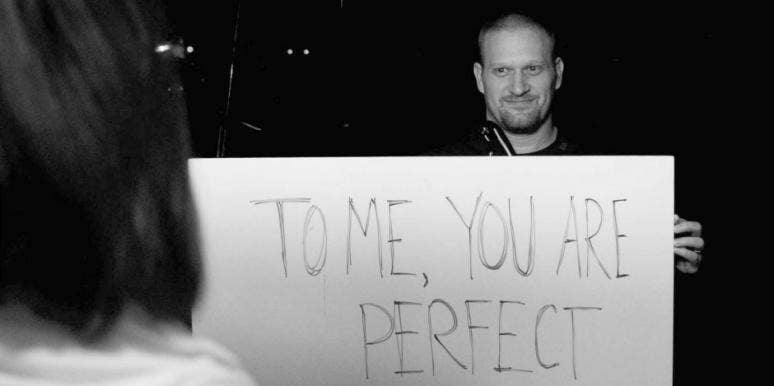 TO ME, YOU ARE
PERFECT